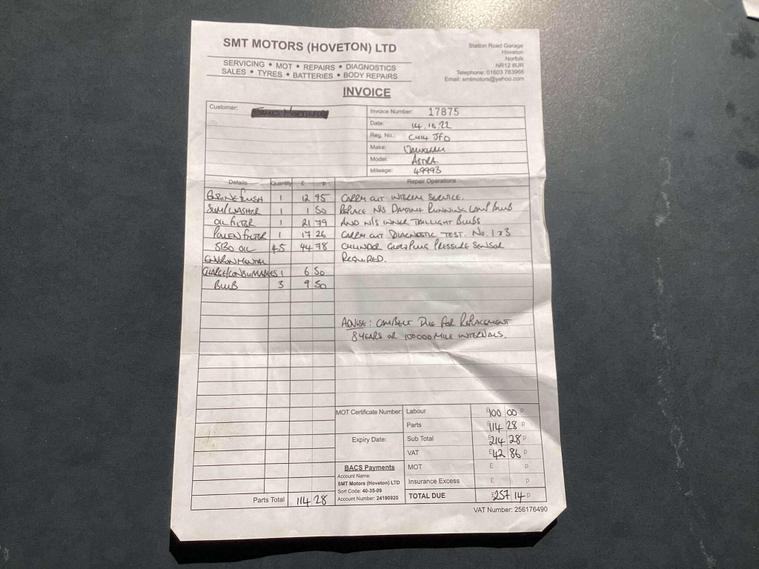 SMT MOTORS (HOVETON) LTD
SERVICING • MOT • REPAIRS • DIAGNOSTICS
SALES • TYRES • BATTERIES • BODY REPAIRS
Station Road Garage
Hoveton
Norfolk
NR12 8UR
Telephone: 01603 783966
Email: smtmotors@yahoo.com
INVOICE
Customer:
Invoice Number: 17875
Date:
Reg. No.:
Make: VAUXHALL
Model: ASTRA
Mileage: 49993
Details Quantity £ p Repair Operations
ENGINE FLUSH 1 12 95 CARRY OUT INTERIM SERVICE.
SUMP WASHER 1 1 50 REPLACE N/S DAYTIME RUNNING LAMP BULB
OIL FILTER 1 21 79 AND N/S INNER TAILLIGHT BULBS
POLLEN FILTER 1 17 26 CARRY OUT DIAGNOSTIC TEST. No. 1 & 3
5W30 OIL 4.5 44 78 CYLINDER GLOW PLUG PRESSURE SENSOR
ENVIRONMENTAL REQUIRED.
CHARGE/CONSUMABLES 1 6 50
BULB 3 9 50
ADVISE: CAMBELT DUE FOR REPLACEMENT
8 YEARS OR 100000 MILE INTERVALS.
MOT Certificate Number: Labour £100 00p
Parts £114 28p
Expiry Date: Sub Total £214 28p
VAT £42 86p
BACS Payments MOT £ p
Account Name:
SMT Motors (Hoveton) LTD Insurance Excess £ p
Sort Code: 40-35-09
Account Number: 24190920
Parts Total 114 28 TOTAL DUE £257 14p
VAT Number: 256176490